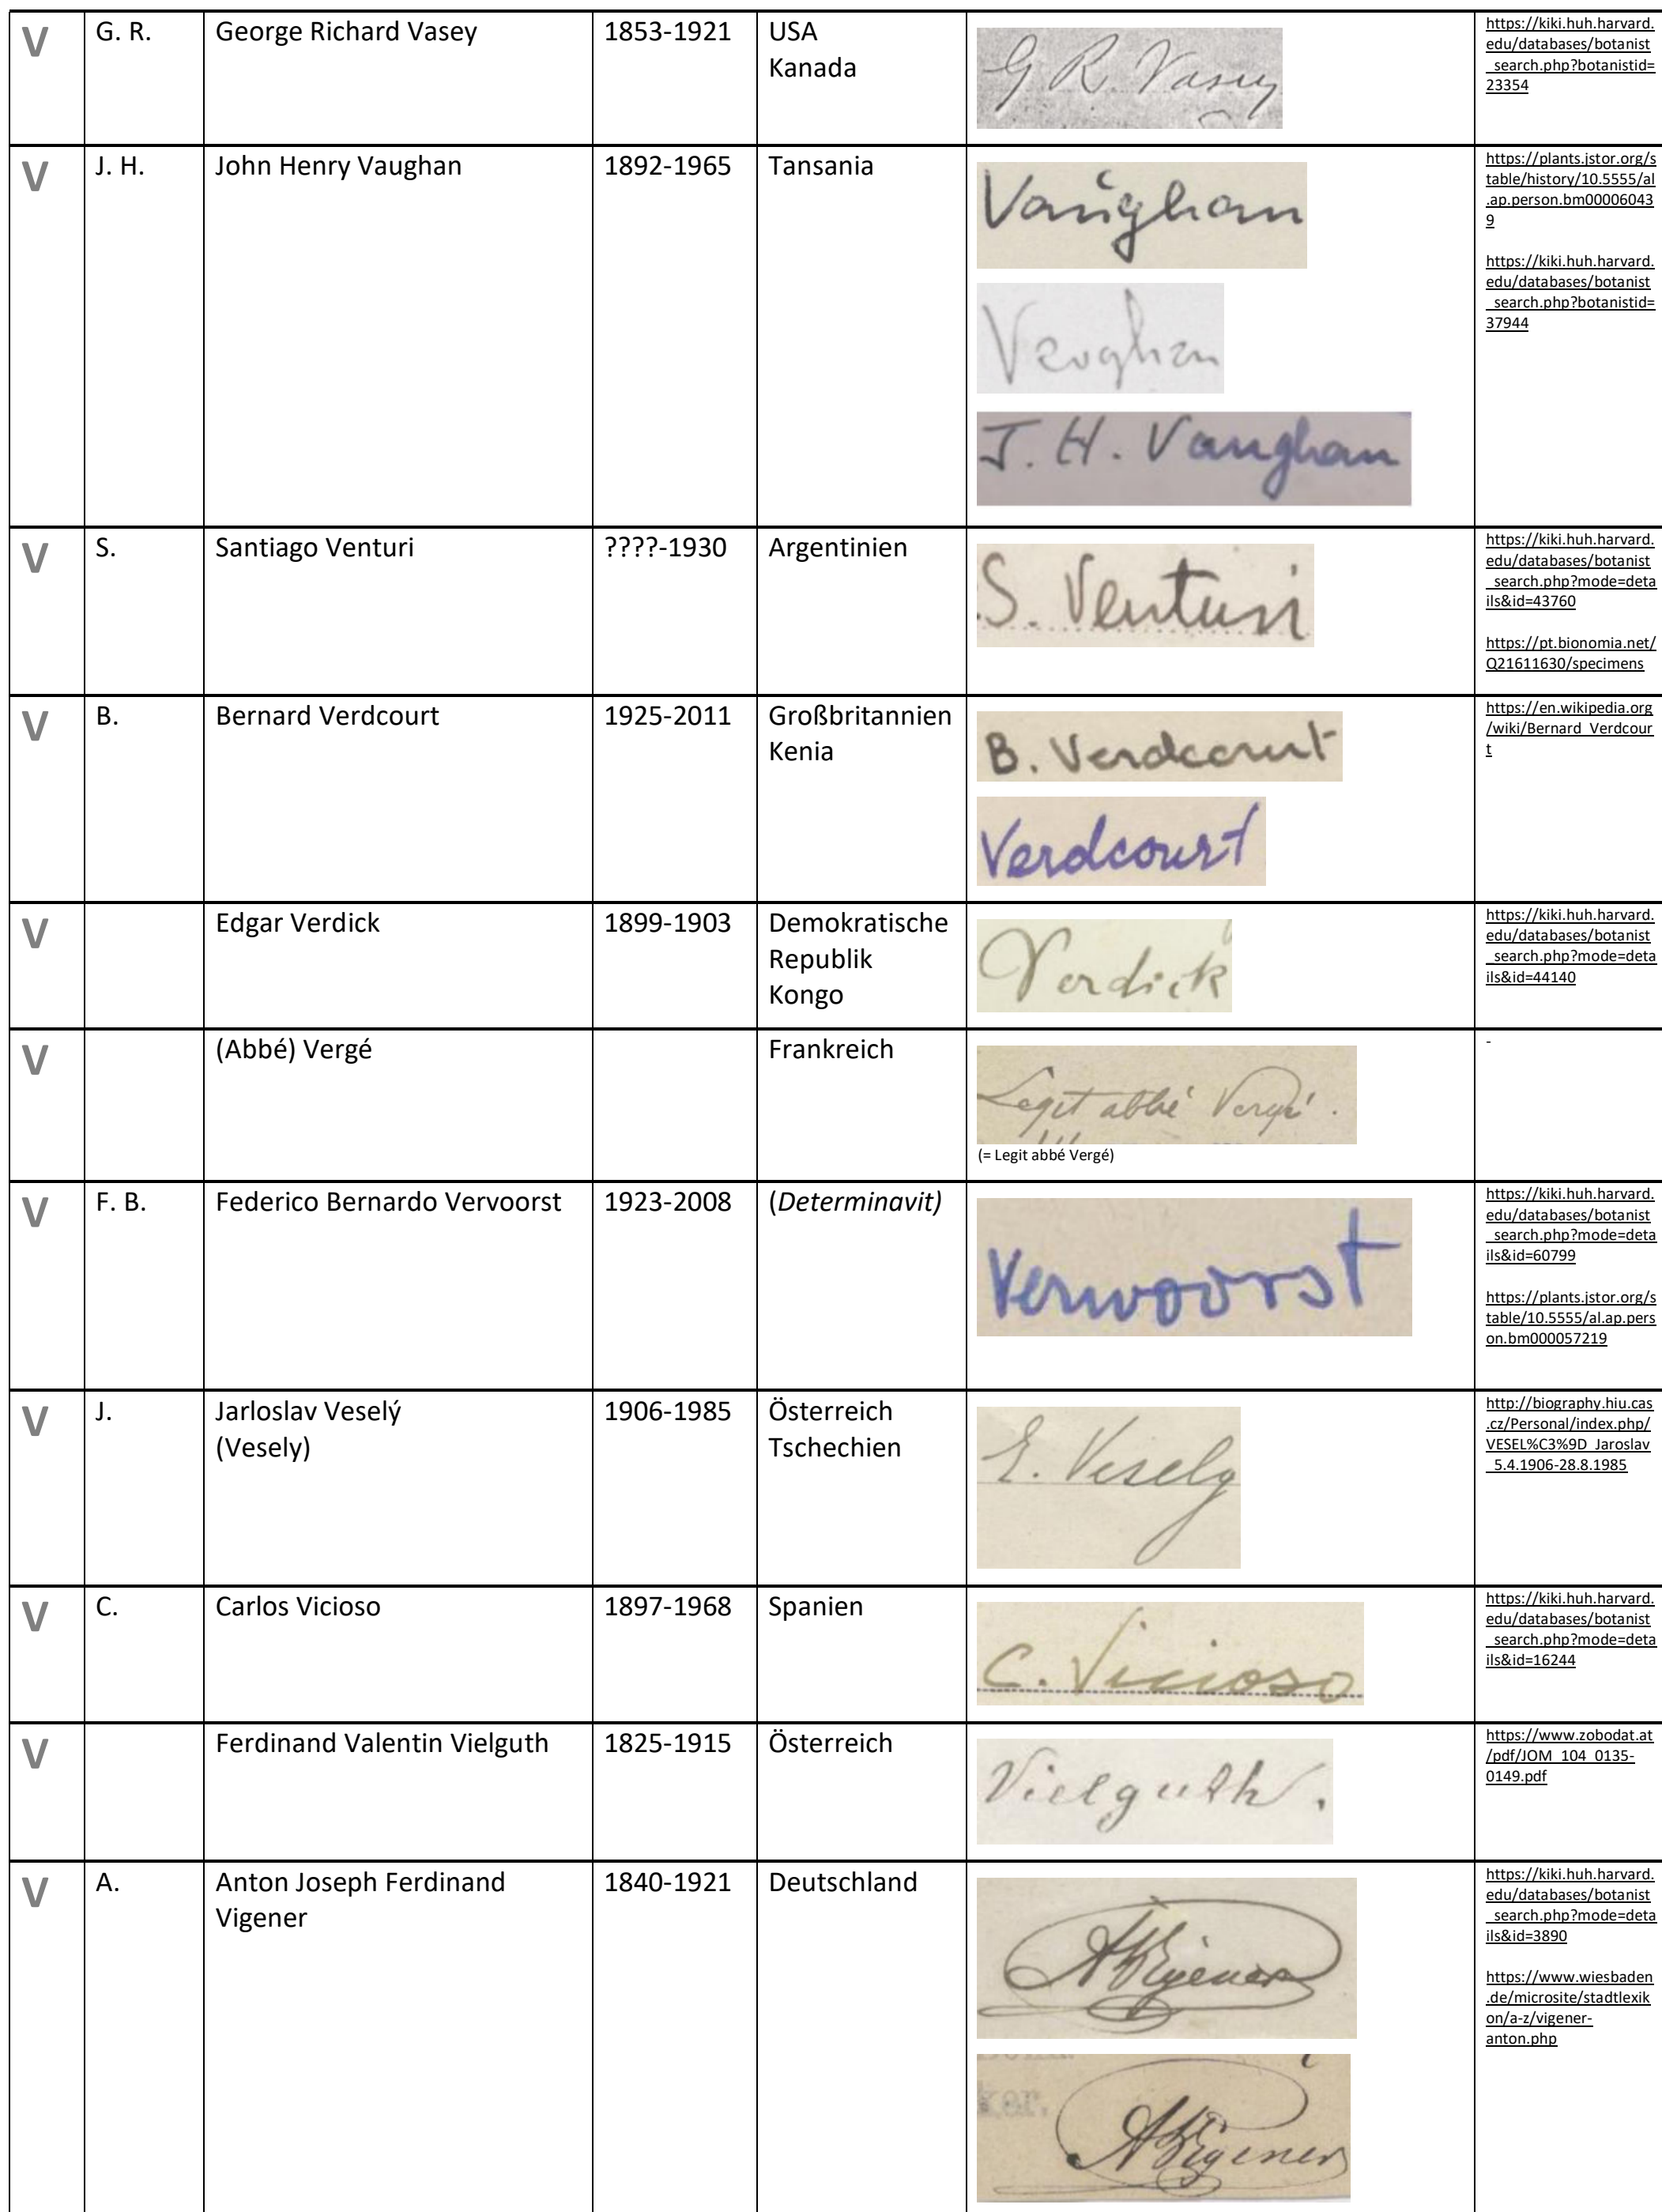 V G. R. George Richard Vasey 1853-1921 USA
Kanada
G R. Vasey
https://kiki.huh.harvard.
edu/databases/botanist
_search.php?botanistid=
23354
V J. H. John Henry Vaughan 1892-1965 Tansania
Vaughan
Vaughan
J. H. Vaughan
https://plants.jstor.org/s
table/history/10.5555/al
.ap.person.bm00006043
9
https://kiki.huh.harvard.
edu/databases/botanist
_search.php?botanistid=
37944
V S. Santiago Venturi ????-1930 Argentinien
S. Venturi
https://kiki.huh.harvard.
edu/databases/botanist
_search.php?mode=deta
ils&id=43760
https://pt.bionomia.net/
Q21611630/specimens
V B. Bernard Verdcourt 1925-2011 Großbritannien
Kenia
B. Verdcourt
Verdcourt
https://en.wikipedia.org
/wiki/Bernard_Verdcour
t
V Edgar Verdick 1899-1903 Demokratische
Republik
Kongo
Verdick
https://kiki.huh.harvard.
edu/databases/botanist
_search.php?mode=deta
ils&id=44140
V (Abbé) Vergé Frankreich
Legit abbé Vergé.
(= Legit abbé Vergé)
-
V F. B. Federico Bernardo Vervoorst 1923-2008 (Determinavit)
Vervoorst
https://kiki.huh.harvard.
edu/databases/botanist
_search.php?mode=deta
ils&id=60799
https://plants.jstor.org/s
table/10.5555/al.ap.pers
on.bm000057219
V J. Jarloslav Veselý 1906-1985 Österreich
(Vesely) Tschechien
E. Vesely
http://biography.hiu.cas
.cz/Personal/index.php/
VESEL%C3%9D_Jaroslav
_5.4.1906-28.8.1985
V C. Carlos Vicioso 1897-1968 Spanien
C. Vicioso
https://kiki.huh.harvard.
edu/databases/botanist
_search.php?mode=deta
ils&id=16244
V Ferdinand Valentin Vielguth 1825-1915 Österreich
Vielguth.
https://www.zobodat.at
/pdf/JOM_104_0135-
0149.pdf
V A. Anton Joseph Ferdinand 1840-1921 Deutschland
Vigener
AVigener
ker.
AVigener
https://kiki.huh.harvard.
edu/databases/botanist
_search.php?mode=deta
ils&id=3890
https://www.wiesbaden
.de/microsite/stadtlexik
on/a-z/vigener-
anton.php